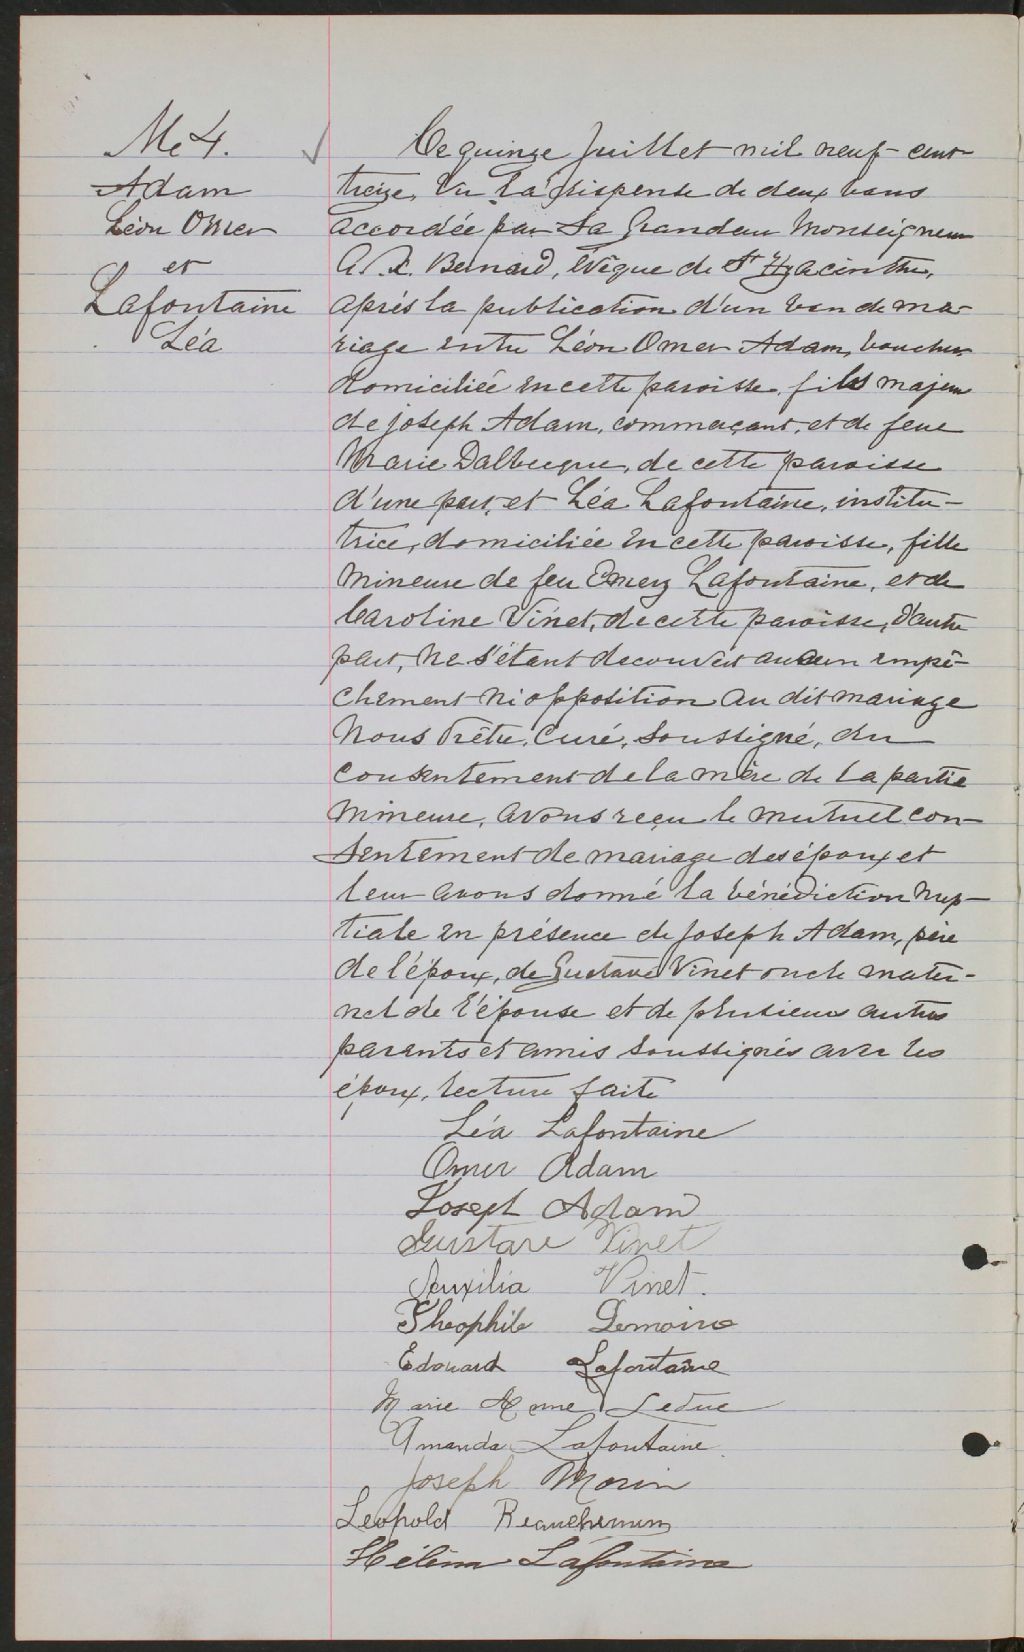 M 4.
Adam
Léon Omer
et
Lafontaine
Léa
Ce quinze Juillet mil neuf-cent
treize, Vu la dispense de deux bans
accordée par Sa Grandeur Monseigneur
A. X. Bernard, Evêque de St Hyacinthe,
après la publication d'un ban de ma-
riage entre Léon Omer Adam, boucher
domiciliée en cette paroisse, fils majeur
de Joseph Adam, commerçant, et de feue
Marie Dalbecque, de cette paroisse
d'une part, et Léa Lafontaine, institu-
trice, domiciliée en cette paroisse, fille
mineure de feu Emery Lafontaine, et de
Caroline Vinet, de cette paroisse, d'autre
part, ne s'étant decouvert aucun empê-
chement ni opposition au dit mariage
Nous Prêtre, Curé, Soussigné, du
consentement de la mère de la partie
mineure, avons reçu le mutuel con-
sentement de mariage des époux et
leur avons donné la bénédiction nup-
tiale en présence de Joseph Adam, père
de l'époux, de Gustave Vinet oncle mater-
nel de l'épouse et de plusieurs autres
parents et amis soussignés avec les
époux, lecture faite
Léa Lafontaine
Omer Adam
Joseph Adam
Gustave Vinet
Auxilia Vinet.
Théophile Lemoine
Edouard Lafontaine
Marie Anne Leduc
Amanda Lafontaine
Joseph Morin
Leopold Beauchemin
Hélèna Lafontaine